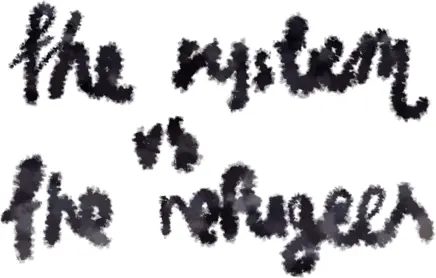 the system
vs
the refugees